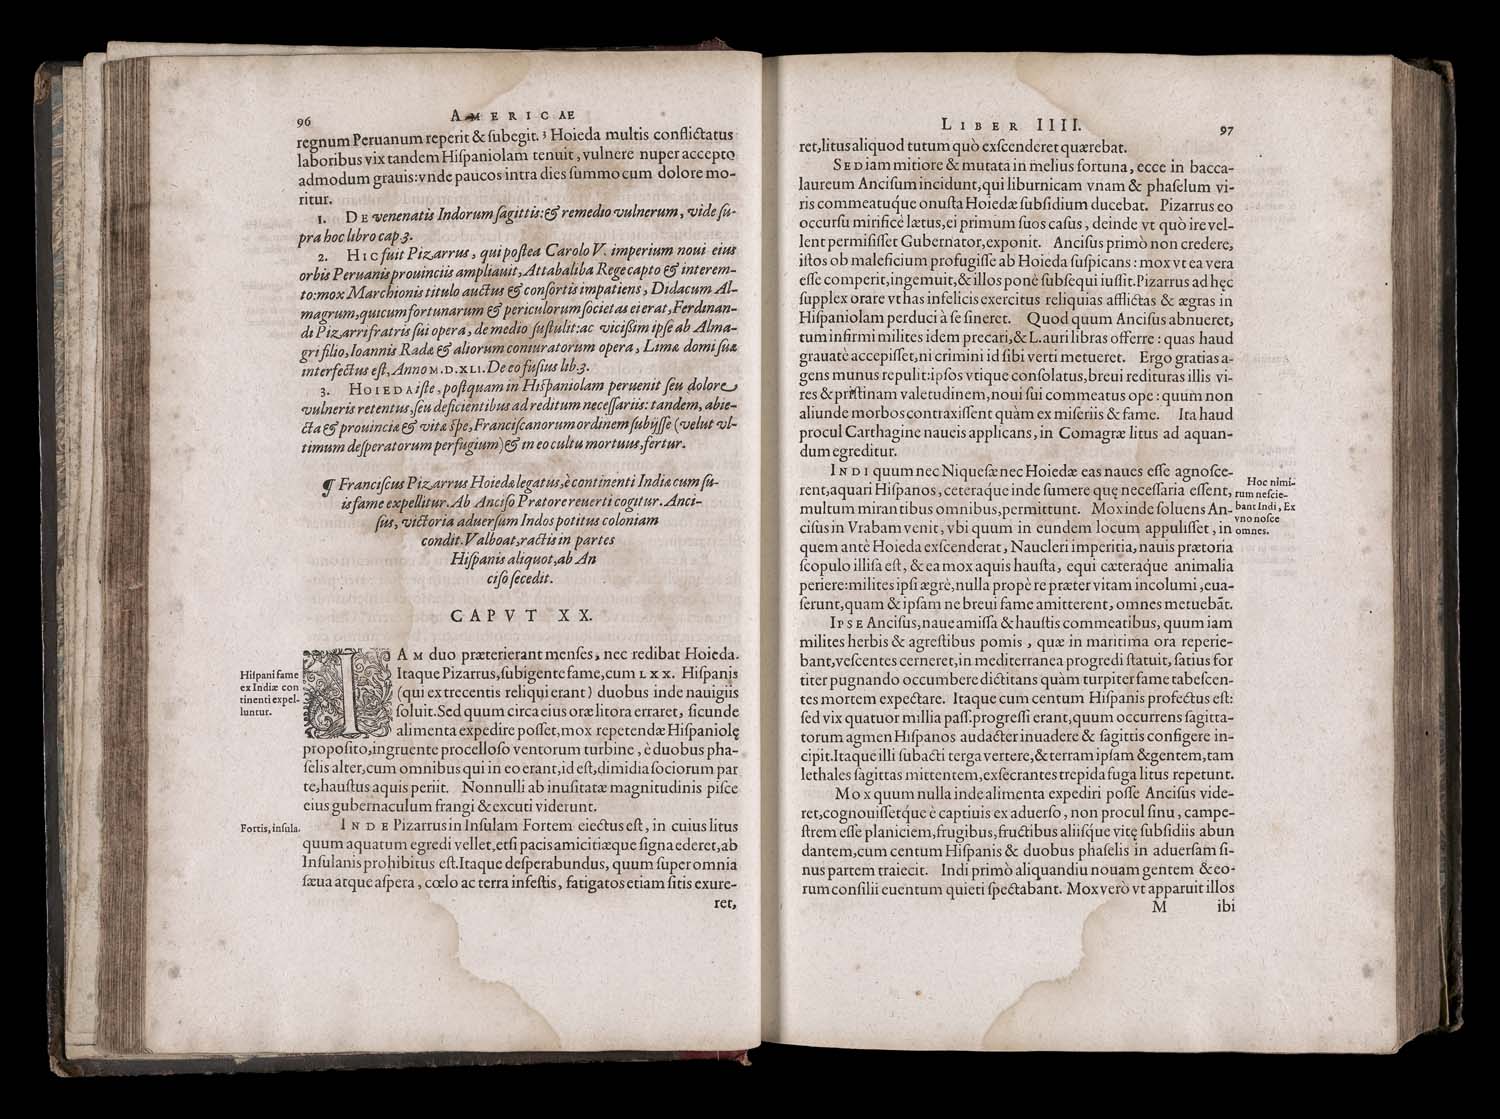 96
AMERICAE
regnum Peruanum reperit & ſubegit. 3 Hoieda multis conflictatus
laboribus vix tandem Hiſpaniolam tenuit, vulnere nuper accepto
admodum grauis: vnde paucos intra dies ſummo cum dolore mo-
ritur.
1. DE venenatis Indorum ſagittis: & remedio vulnerum, vide ſu-
pra hoc libro cap. 3.
2. HIC fuit Pizarrus, qui poſtea Carolo V. imperium noui eius
orbis Peruanis prouinciis ampliauit, Attabaliba Rege capto & interem-
to: mox Marchionis titulo auctus & conſortis impatiens, Didacum Al-
magrum, quicum fortunarum & periculorum ſocietas ei erat, Ferdinan-
di Pizarri fratris ſui opera, de medio ſuſtulit: ac viciſſim ipſe ab Alma-
gri filio, Ioannis Radæ & aliorum coniuratorum opera, Limæ domi ſuæ
interfectus eſt, Anno M.D.XLI. De eo fuſius lib. 3.
3. HOIEDA iſte, poſtquam in Hiſpaniolam peruenit ſeu dolore
vulneris retentus, ſeu deficientibus ad reditum neceſſariis: tandem, abie-
cta & prouinciæ & vitæ ſpe, Franciſcanorum ordinem ſubijſſe (velut vl-
timum deſperatorum perfugium) & in eo cultu mortuus, fertur.
¶ Franciſcus Pizarrus Hoiedæ legatus, è continenti India cum ſu-
is fame expellitur. Ab Anciſo Prætore reuerti cogitur. Anci-
ſus, victoria aduerſum Indos potitus coloniam
condit. Valboat, ractis in partes
Hiſpanis aliquot, ab An
ciſo ſecedit.
CAPVT XX.
IAM duo præterierant menſes, nec redibat Hoieda.
Itaque Pizarrus, ſubigente fame, cum LXX. Hiſpanis
(qui ex trecentis reliqui erant) duobus inde nauigiis
ſoluit. Sed quum circa eius oræ litora erraret, ſicunde
alimenta expedire poſſet, mox repetendæ Hiſpaniolę
propoſito, ingruente procelloſo ventorum turbine, è duobus pha-
ſelis alter, cum omnibus qui in eo erant, id eſt, dimidia ſociorum par
te, hauſtus aquis periit. Nonnulli ab inuſitatæ magnitudinis piſce
eius gubernaculum frangi & excuti viderunt.
INDE Pizarrus in Inſulam Fortem eiectus eſt, in cuius litus
quum aquatum egredi vellet, etſi pacis amicitiæque ſigna ederet, ab
Inſulanis prohibitus eſt. Itaque deſperabundus, quum ſuper omnia
ſæua atque aſpera, cœlo ac terra infeſtis, fatigatos etiam ſitis exure-
ret,
Hiſpani fame
ex Indiæ con
tinenti expel-
luntur.
Fortis, inſula.
LIBER IIII.
97
ret, litus aliquod tutum quò exſcenderet quærebat.
SED iam mitiore & mutata in melius fortuna, ecce in bacca-
laureum Anciſum incidunt, qui liburnicam vnam & phaſelum vi-
ris commeatuq́ue onuſta Hoiedæ ſubſidium ducebat. Pizarrus eo
occurſu mirificè lætus, ei primum ſuos caſus, deinde vt quò ire vel-
lent permiſiſſet Gubernator, exponit. Anciſus primò non credere,
iſtos ob maleficium profugiſſe ab Hoieda ſuſpicans: mox vt ea vera
eſſe comperit, ingemuit, & illos ponè ſubſequi iuſſit. Pizarrus ad hęc
ſupplex orare vt has infelicis exercitus reliquias afflictas & ægras in
Hiſpaniolam perduci à ſe ſineret. Quod quum Anciſus abnueret,
tum infirmi milites idem precari, & L. auri libras offerre: quas haud
grauatè accepiſſet, ni crimini id ſibi verti metueret. Ergo gratias a-
gens munus repulit: ipſos vtique conſolatus, breui redituras illis vi-
res & priſtinam valetudinem, noui ſui commeatus ope: quum non
aliunde morbos contraxiſſent quàm ex miſeriis & fame. Ita haud
procul Carthagine naueis applicans, in Comagræ litus ad aquan-
dum egreditur.
INDI quum nec Niqueſæ nec Hoiedæ eas naues eſſe agnoſce-
rent, aquari Hiſpanos, ceteraq́ue inde ſumere quę neceſſaria eſſent,
multum mirantibus omnibus, permittunt. Mox inde ſoluens An-
ciſus in Vrabam venit, vbi quum in eundem locum appuliſſet, in
quem antè Hoieda exſcenderat, Naucleri imperitia, nauis prætoria
ſcopulo illiſa eſt, & ea mox aquis hauſta, equi cæteraque animalia
periere: milites ipſi ægrè, nulla propè re præter vitam incolumi, eua-
ſerunt, quam & ipſam ne breui fame amitterent, omnes metuebāt.
IPSE Anciſus, naue amiſſa & hauſtis commeatibus, quum iam
milites herbis & agreſtibus pomis, quæ in maritima ora reperie-
bant, veſcentes cerneret, in mediterranea progredi ſtatuit, ſatius for
titer pugnando occumbere dictitans quàm turpiter fame tabeſcen-
tes mortem expectare. Itaque cum centum Hiſpanis profectus eſt:
ſed vix quatuor millia paſſ. progreſſi erant, quum occurrens ſagitta-
torum agmen Hiſpanos audacter inuadere & ſagittis configere in-
cipit. Itaque illi ſubacti terga vertere, & terram ipſam & gentem, tam
lethales ſagittas mittentem, exſecrantes trepida fuga litus repetunt.
MOX quum nulla inde alimenta expediri poſſe Anciſus vide-
ret, cognouiſſetq́ue è captiuis ex aduerſo, non procul ſinu, campe-
ſtrem eſſe planiciem, frugibus, fructibus aliiſq́ue vitę ſubſidiis abun
dantem, cum centum Hiſpanis & duobus phaſelis in aduerſam ſi-
nus partem traiecit. Indi primò aliquandiu nouam gentem & eo-
rum conſilii euentum quieti ſpectabant. Mox verò vt apparuit illos
M ibi
Hoc nimi-
rum neſcie-
bant Indi, Ex
vno noſce
omnes.